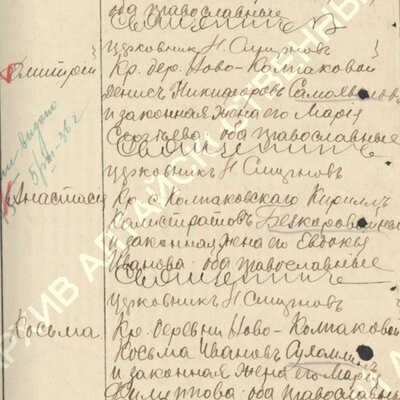 оба православные
Священникъ
церковник Н. Смирновъ
Димитрій
Кр. дер. Ново-Колпаковой
Денисъ Никифоровъ
и законная жена его Марія
Сергѣева: оба православные
Священникъ
церковникъ Н. Смирновъ
Анастасія
Кр. с. Колпаковскаго Кириллъ
Калистратовъ
и законная жена его Евдокія
Иванова: оба православные
Священникъ
церковникъ Н. Смирновъ
Косьма
Кр. деревни Ново-Колпаковой
Косьма Ивановъ
и законная жена его Марія
Филиппова: оба православные